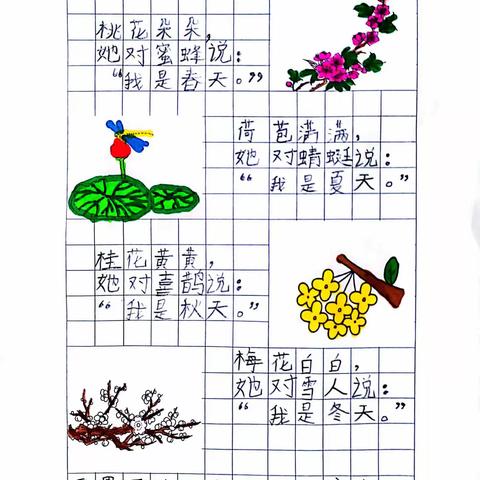 桃花朵朵，
她对蜜蜂说：
“我是春天。”
荷苞满满，
她对蜻蜓说：
“我是夏天。”
桂花黄黄，
她对喜鹊说：
“我是秋天。”
梅花白白，
她对雪人说：
“我是冬天。”